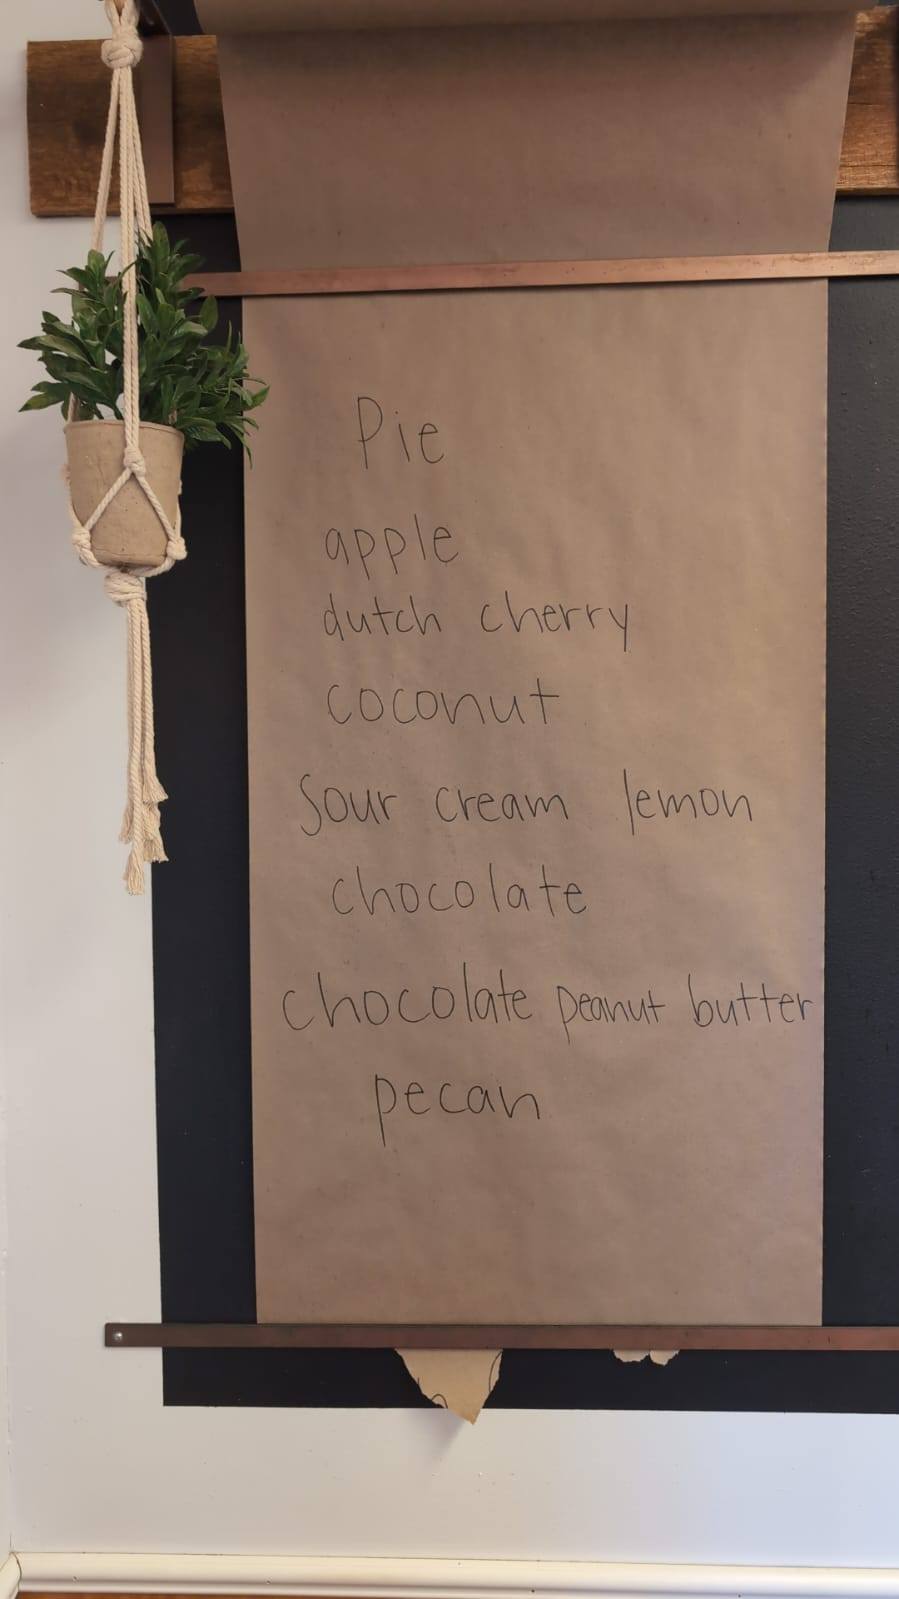 Pie
apple
dutch cherry
coconut
Sour cream lemon
chocolate
chocolate peanut butter
pecan